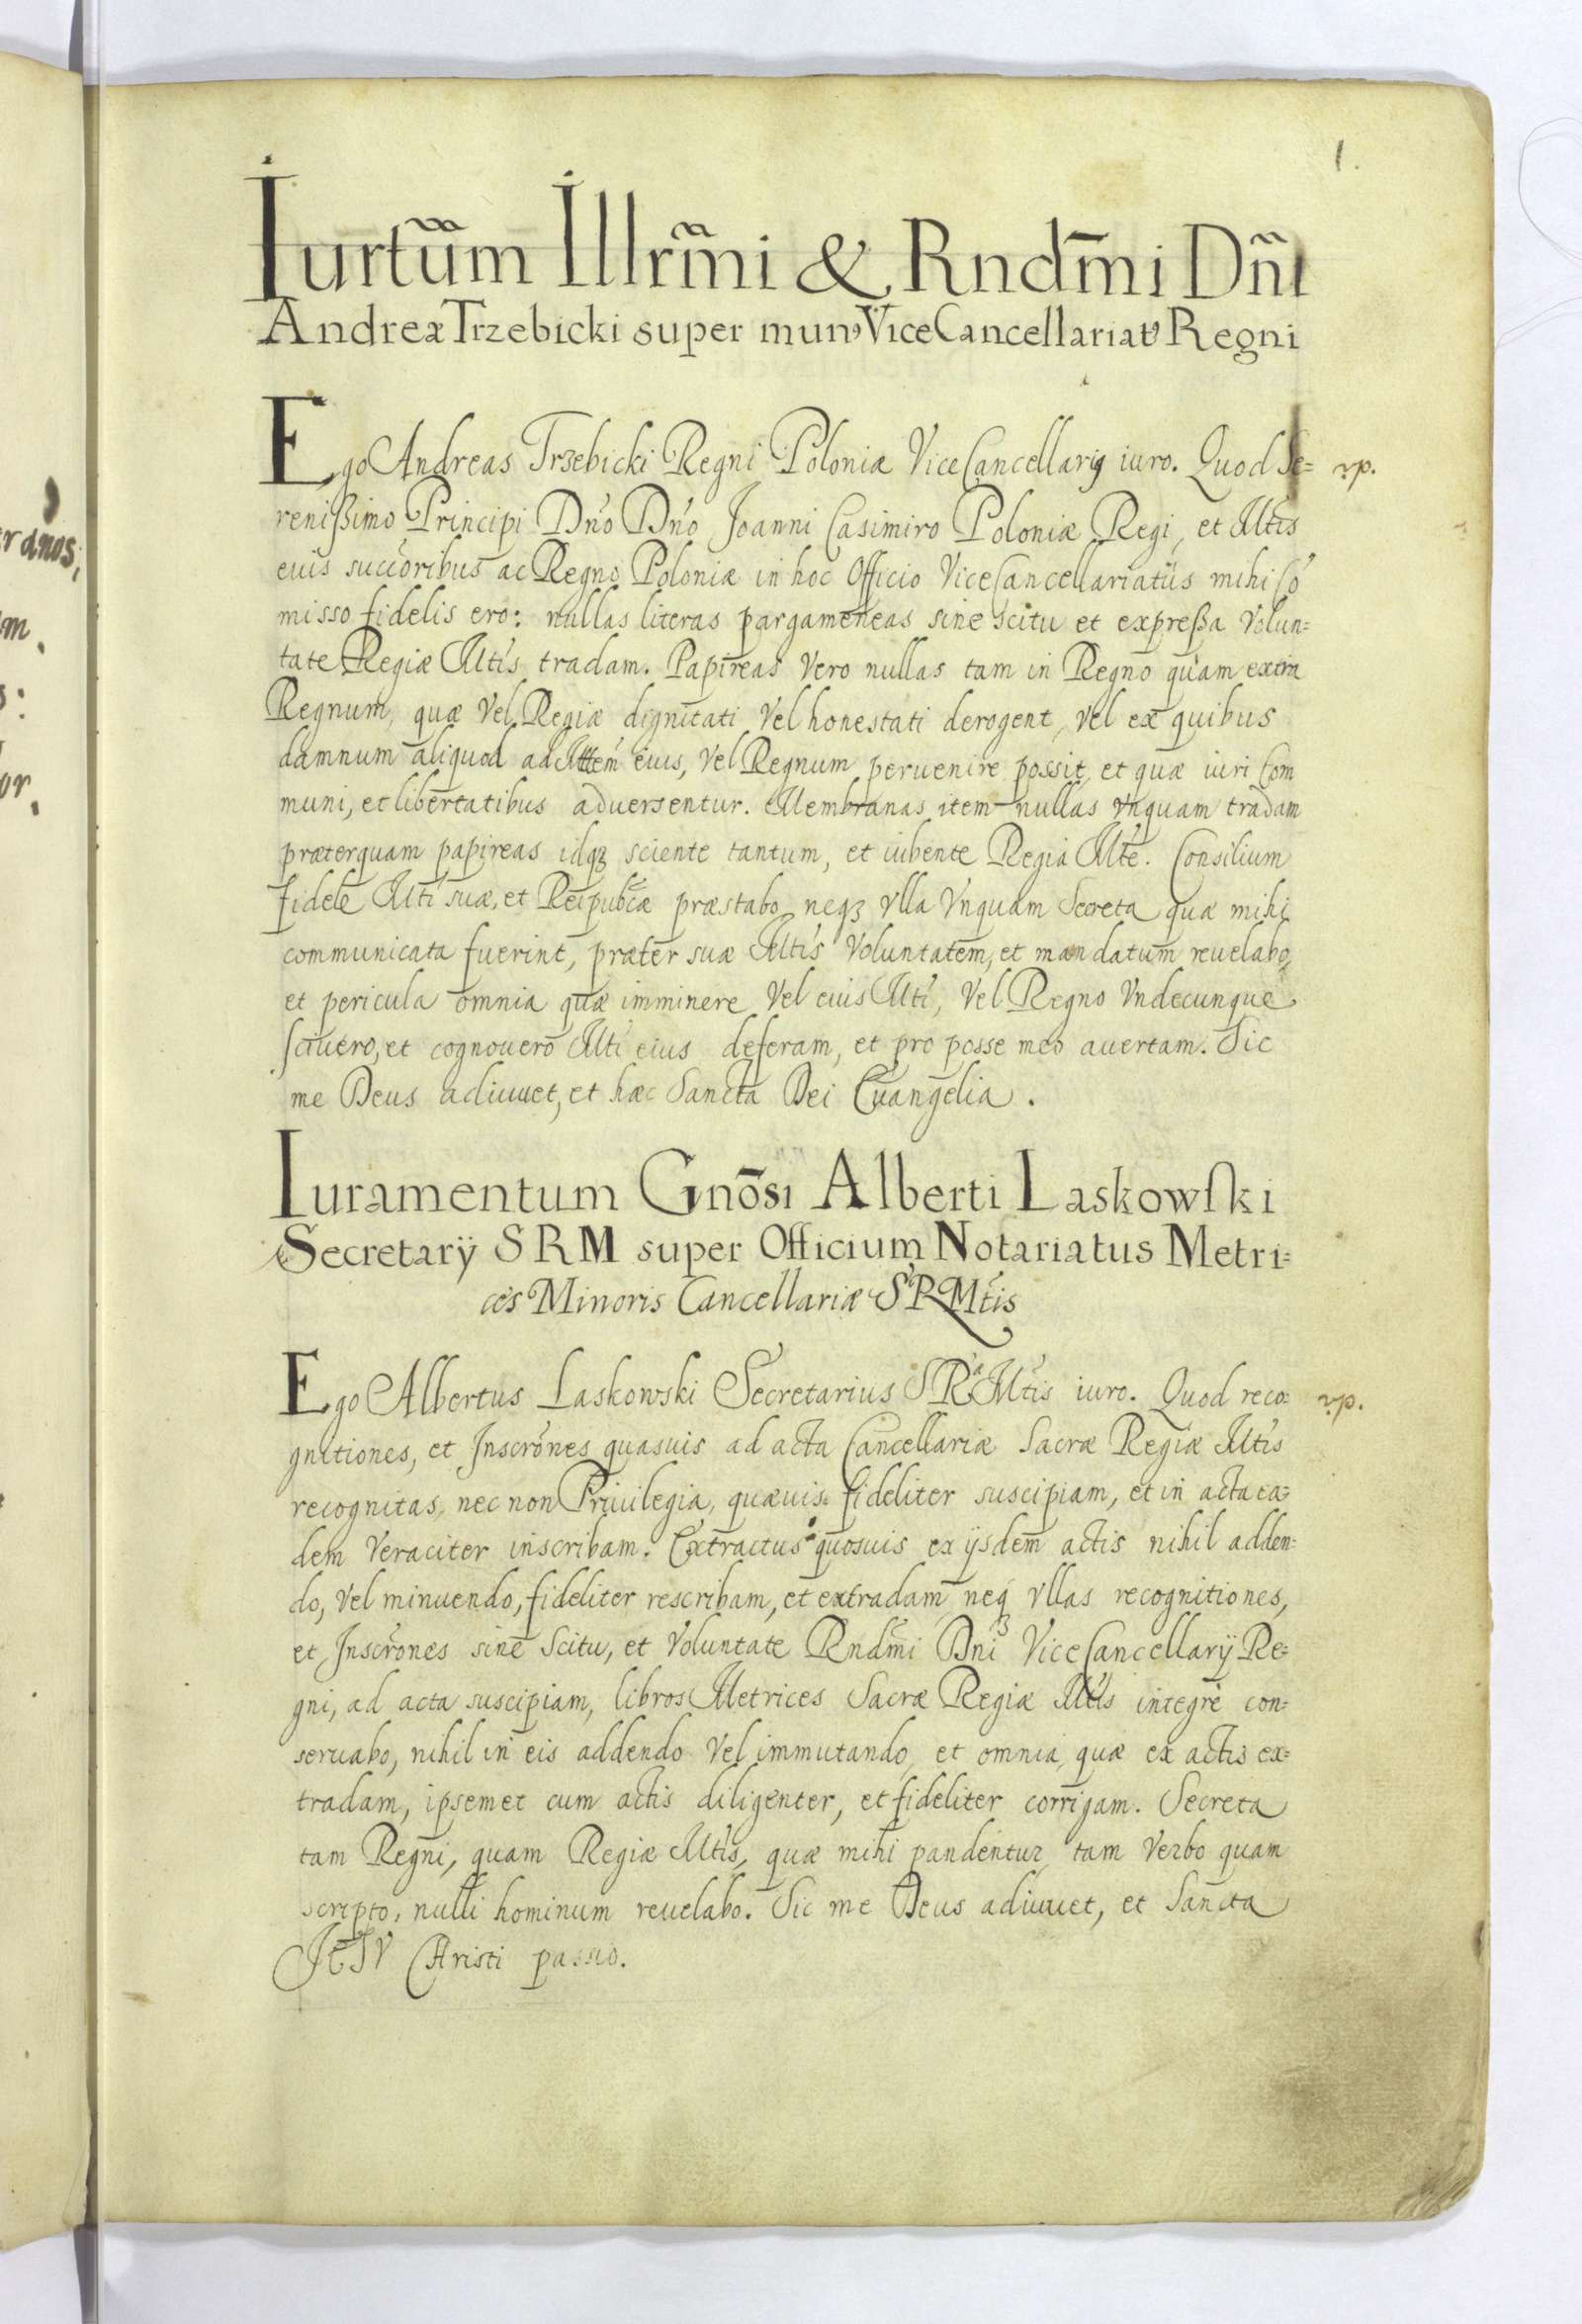 1.
Iurtũm Illrm̃i & Rndm̃i Dñi
Andreæ Trzebicki super mun⁹ ViceCancellariat⁹ Regni
Ego Andreas Trzebicki Regni Poloniæ ViceCancellari9 iuro. Quod Se= rp.
renißimo Principi Dn̄o Dn̄o Joanni Casimiro Poloniæ Regi, et Mtis
eius succōribus ac Regno Poloniæ in hoc Officio ViceCancellariatûs mihi Cō
misso fidelis ero: nullas literas pargameneas sine scitu et expreßa Volun=
tate Regiæ Mtis tradam. Papireas Vero nullas tam in Regno quàm extra
Regnum, quæ Vel Regiæ dignitati Vel honestati derogent, vel ex quibus
damnum aliquod ad Mttem eius, Vel Regnum peruenire possit, et quæ iuri Com
muni, et libertatibus aduersentur. Membranas item nullas vnquam tradam
præterquam papireas idqꝫ sciente tantum, et iubente Regia Mte. Consilium
fidele Mti suæ, et Reipubcæ præstabo neqꝫ vlla Vnquam Secreta quæ mihi
communicata fuerint, præter suæ Mtis Voluntatem, et mandatum reuelabo,
et pericula omnia quæ imminere Vel eius Mti, Vel Regno Vndecunque
sciuero, et cognouero Mti eius deferam, et pro posse meo auertam. Sic
me Deus adiuuet, et hæc Sancta Dei Euangelia.
Iuramentum Gnōsi Alberti Laskowſki
Secretarÿ SRM super Officium Notariatus Metri=
ces Minoris Cancellariæ SRMtis
Ego Albertus Laskowski Secretarius SRæ Mtis iuro. Quod reco= rp.
gnitiones, et Inscrōnes quasuis ad acta Cancellariæ Sacræ Regiæ Mtis
recognitas, nec non Priuilegia, quæuis fideliter suscipiam, et in acta ea=
dem Veraciter inscribam. Extractus quosuis ex ijsdem actis nihil adden=
do, vel minuendo, fideliter rescribam, et extradam neqꝫ vllas recognitiones,
et Inscrōnes sine Scitu, et Voluntate Rndm̃i Dni ViceCancellarÿ Re=
gni, ad acta suscipiam, libros Metrices Sacræ Regiæ Mtis integrè con=
seruabo, nihil in eis addendo Vel immutando, et omnia, quæ ex actis ex=
tradam, ipsemet cum actis diligenter, et fideliter corrigam. Secreta
tam Regni, quam Regiæ Mtis, quæ mihi pandentur, tam Verbo quam
scripto, nulli hominum reuelabo. Sic me Deus adiuuet, et Sancta
JESV Christi passio.